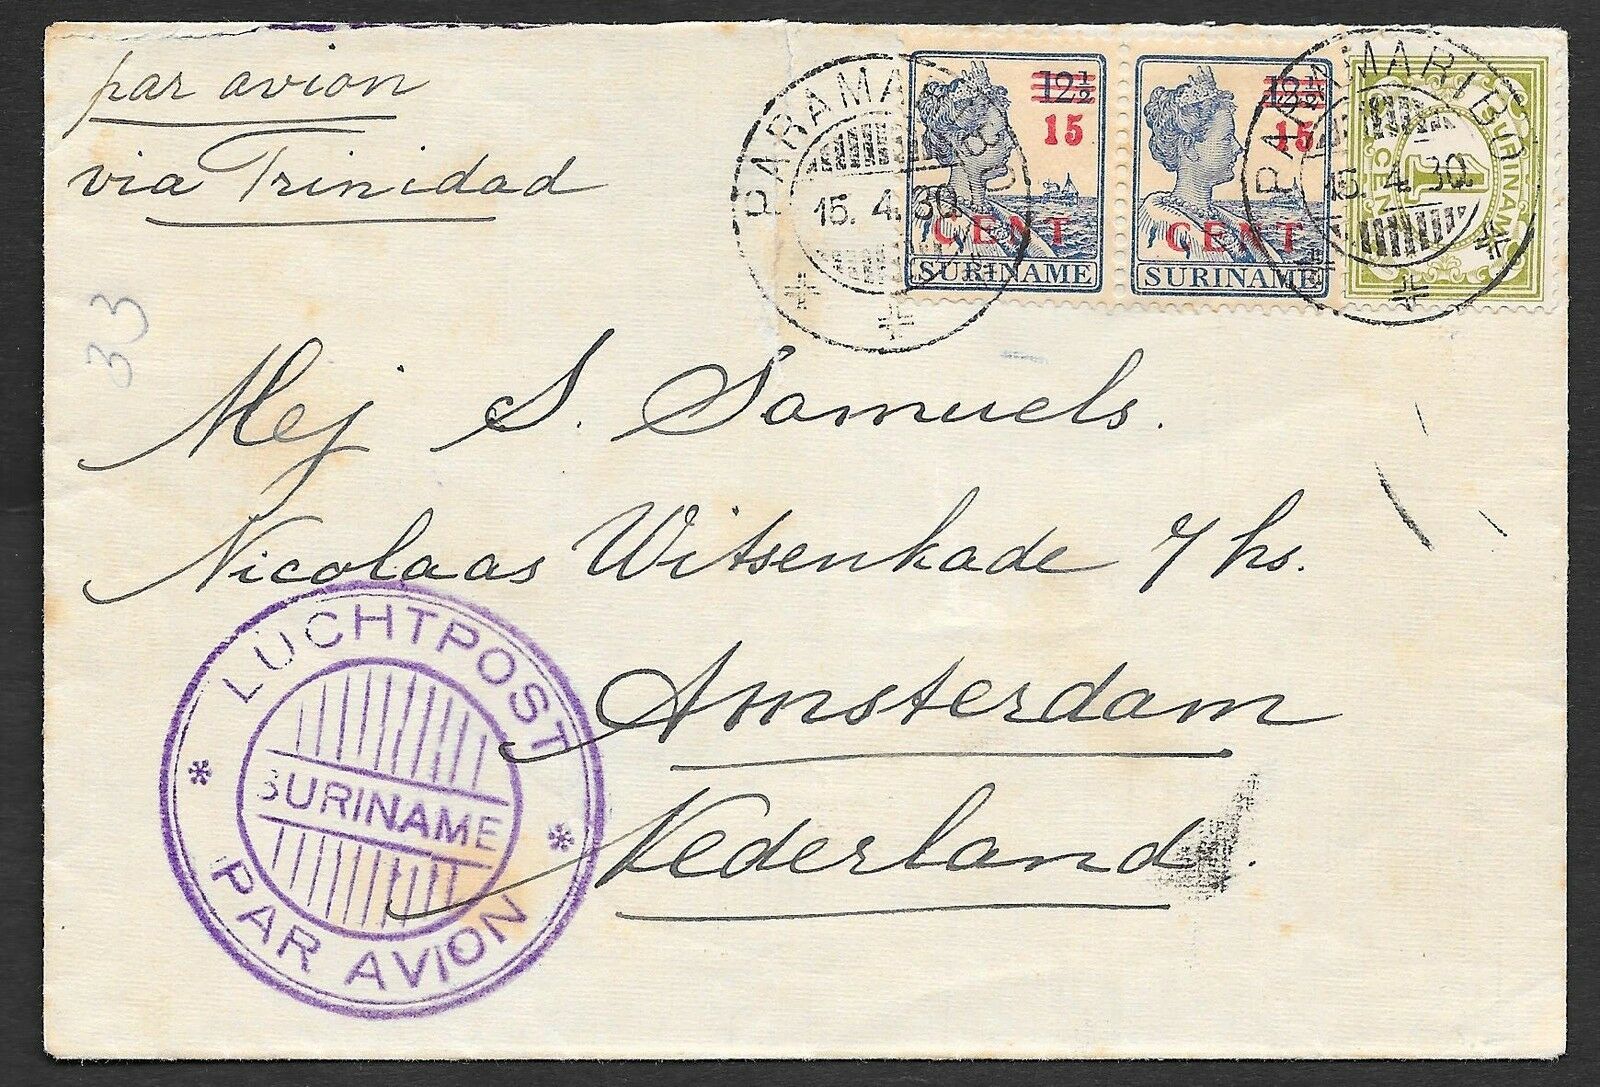 par avion
via Trinidad
PARAMARIBO
15.4.30
12½
15
CENT
SURINAME
12½
15
CENT
SURINAME
PARAMARIBO
15.4.30.
SURINAME
CENT
33
Mej S. Samuels.
Nicolaas Witsenkade 7 hs.
Amsterdam
Nederland.
LUCHTPOST
SURINAME
PAR AVION